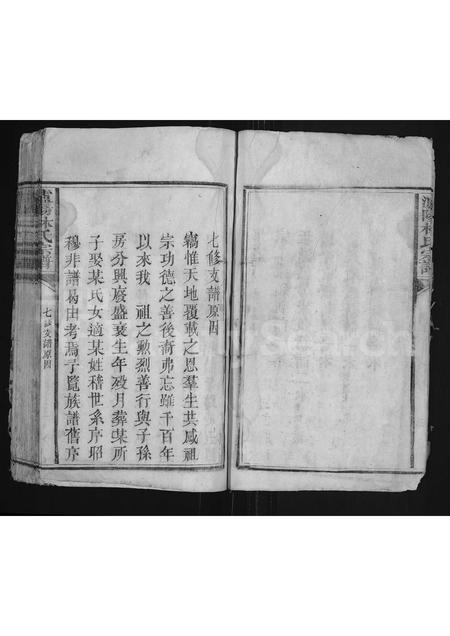 七修支譜原因
竊惟天地覆載之恩羣生共咸祖
宗功德之善後裔弗忘雖千百年
以來我 祖之勲烈善行與子孫
房分興廢盛衰生年殁月葬某所
子娶某氏女適某姓稽世系序昭
穆非譜曷由考焉予覽族譜舊序
林氏宗譜
七修支譜原因